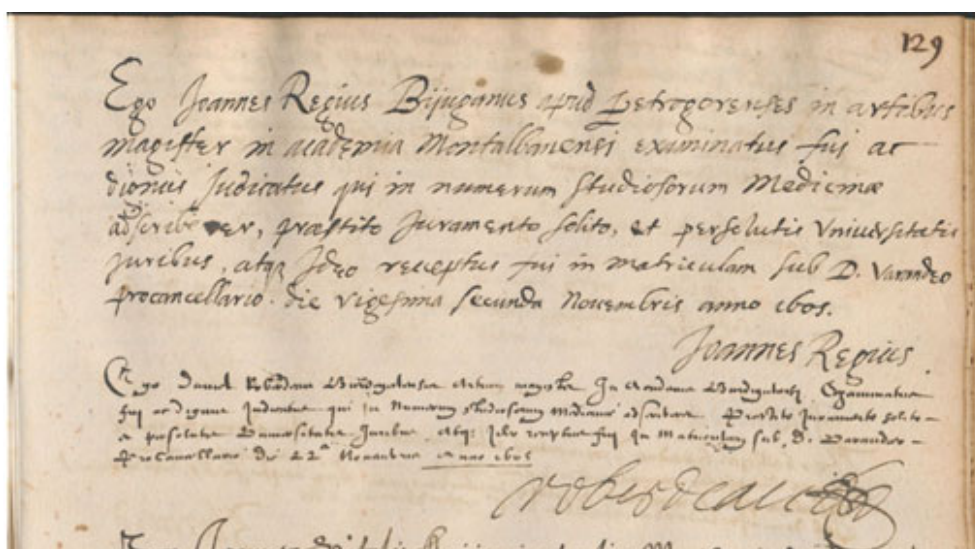 129
Ego Joannes Regius Bijuganus apud Petrogorenses in artibus
magister in academia Montalbanensi examinatus fui ac
dignus Judicatus qui in numerum studiosorum Medicinæ
adscriberer, præstito Juramento solito, et persolutis Vniuersitatis
Juribus, atq3 Ideo receptus fui in matriculam sub D. Varandeo
procancellario. die vigesima secunda Novembris anno 1605.
Joannes Regius.
Ego Daniel Burdigalensis Artium magister In Academia Burdigalensi Examinatus
fui ac dignus Judicatus qui in Numerum studiosorum Medicinæ adscriberer Prestito Juramento solito
persolutis Vniuersitatis Juribus Atq3 Ideo receptus fui In Matriculam sub. D. Varandeo
Procancellario Die 22ª Nouembris Anno 1605